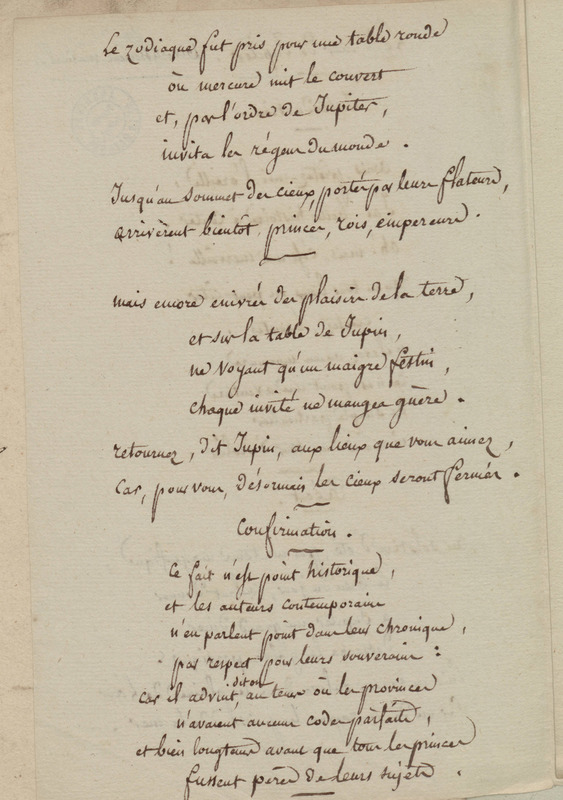 Le zodiaque fut pris pour une table ronde
où mercure mit le couvert
et, par l'ordre de Jupiter,
invita les régens du monde.
Jusqu'au sommet des cieux, portés par leurs flateurs,
arrivèrent bientôt princes, rois, empereurs.
mais encore enivrés des plaisirs de la terre,
et sur la table de Jupin,
ne voyant qu'un maigre festin,
chaque invité ne mangea guère.
retournez, dit Jupin, aux lieux que vous aimez,
car, pour vous, désormais les cieux seront fermés.
Confirmation.
Ce fait n'est point historique,
et les auteurs contemporains
n'en parlent point dans leurs chroniques,
par respect pour leurs souverains :
car il advint, dit on, au tems où les provinces
n'avaient aucuns codes parfaits,
et bien longtems avant que tous les princes
fussent pères de leurs sujets.